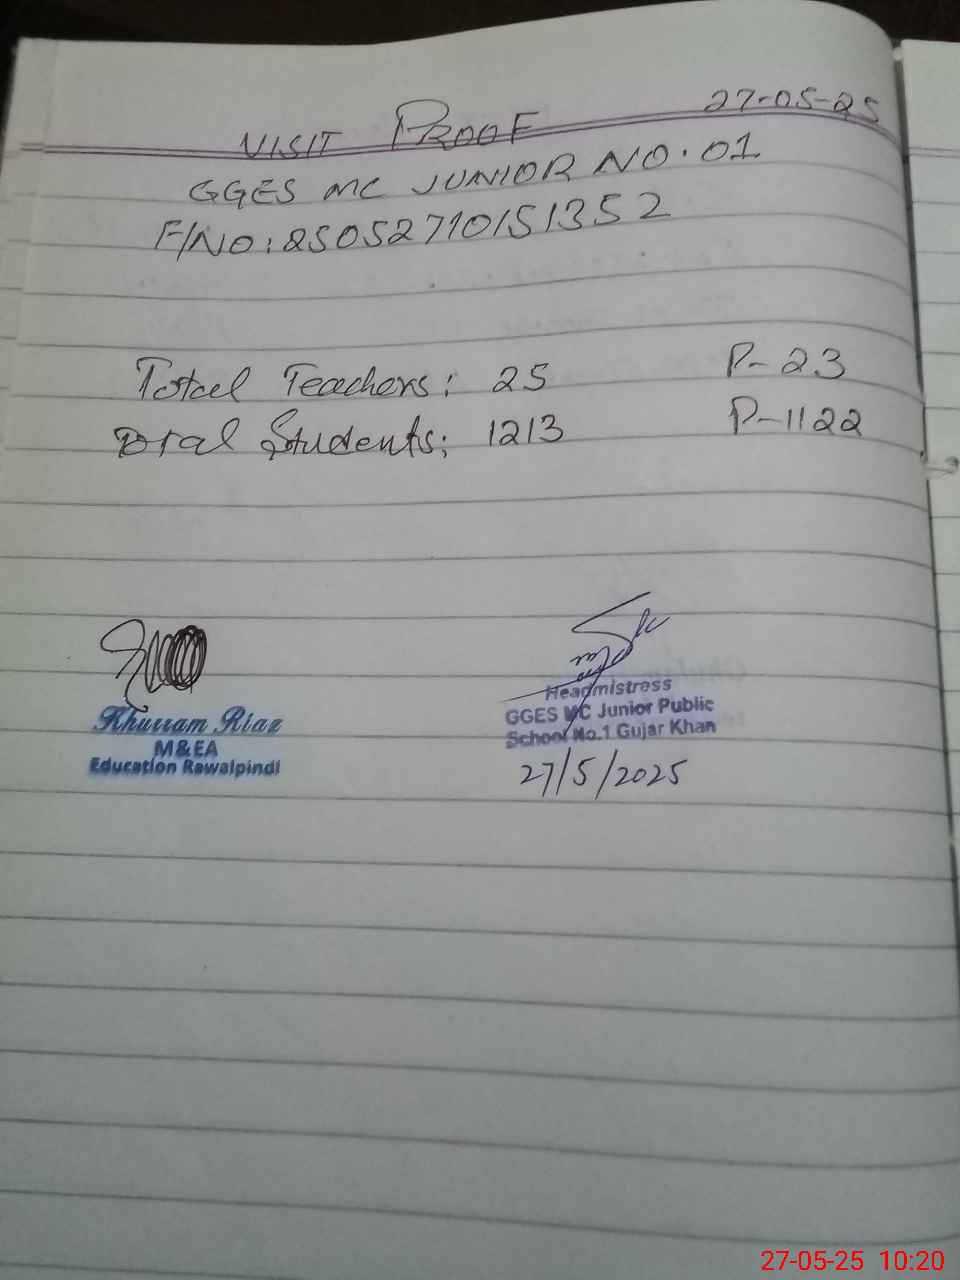 27-05-25
VISIT PROOF
GGES MC JUNIOR NO. 01
F/NO: 25052710151352
Total Teachers: 25 P-23
Total Students: 1213 P-1122
Khurram Riaz
M&EA
Education Rawalpindi
Headmistress
GGES MC Junior Public
School No.1 Gujar Khan
27/5/2025
27-05-25 10:20